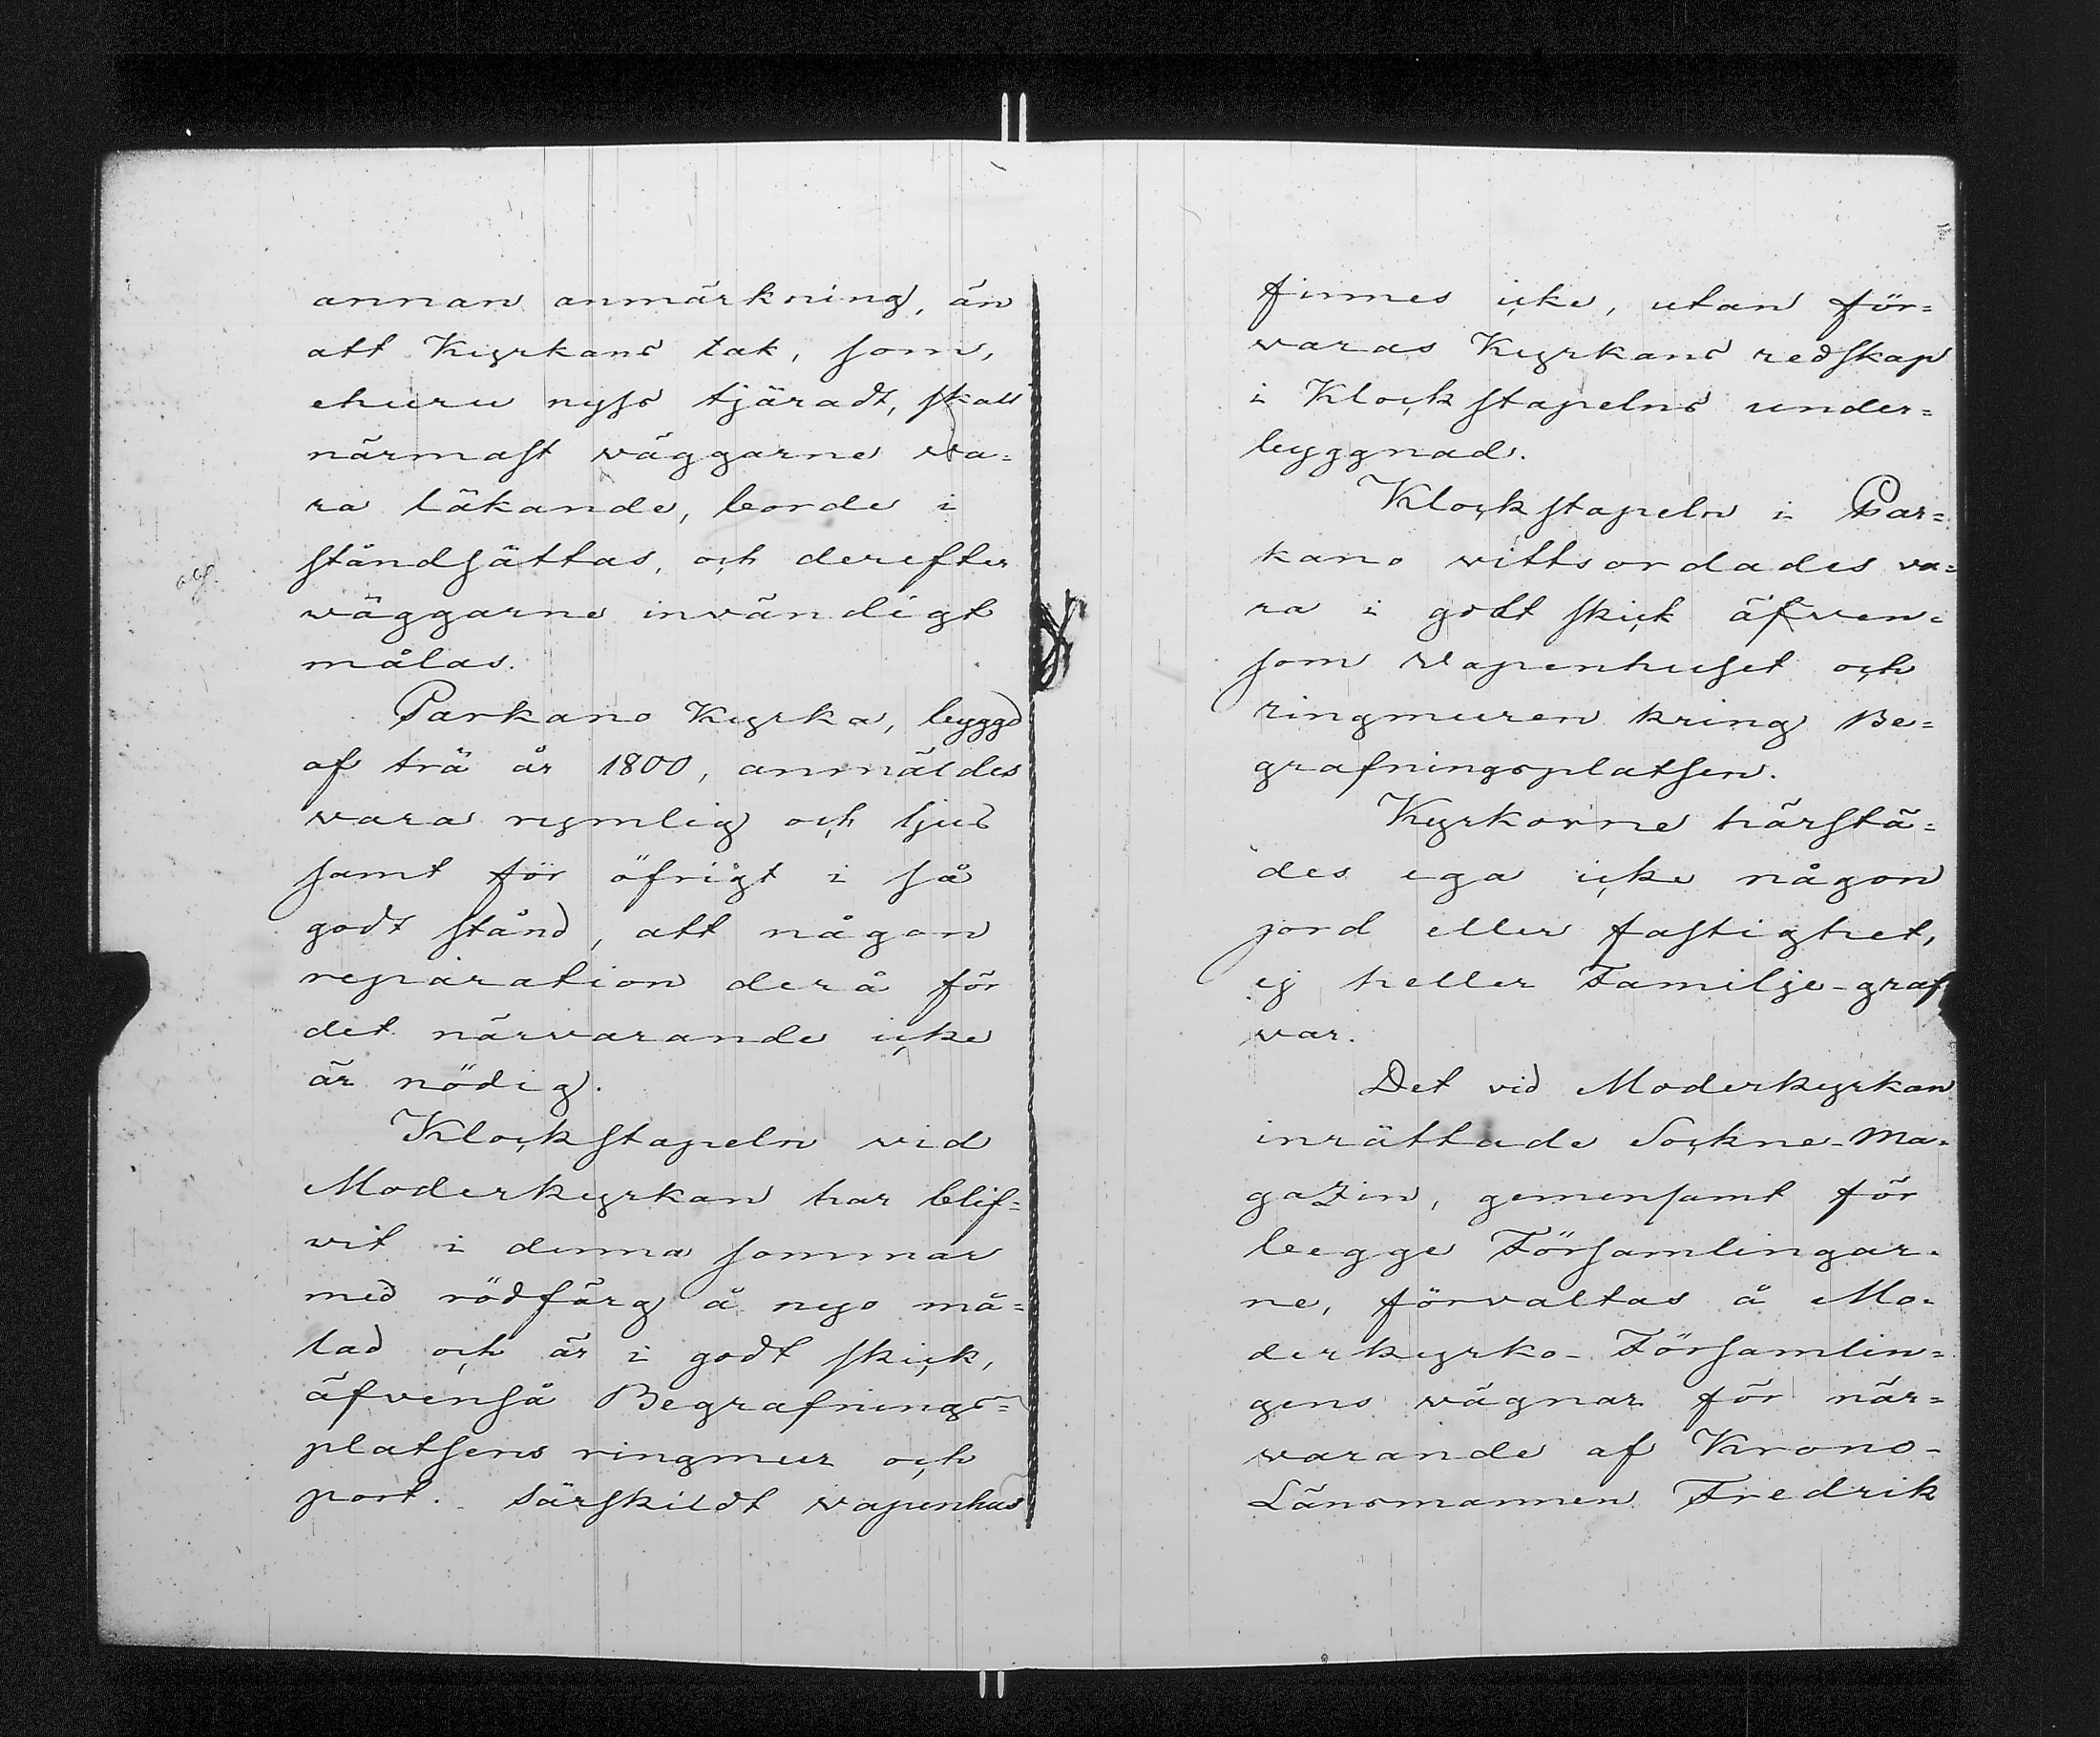 annan anmärkning, än
att Kyrkans tak, som,
ehuru nyss tjäradt, skall
närmast väggarne va=
ra läkande, borde i
ståndsättas, och derefter
väggarne invändigt
målas.
Parkano Kyrka, byggd
af trä år 1800, anmäldes
vara rymlig och ljus
samt för öfrigt i så
godt stånd, att någon
reparation derå för
det närvarande icke
är nödig.
Klockstapeln vid
Moderkyrkan har blif=
vit i denna sommar
med rödfärg å nyo må=
lad och är i godt skick,
äfvenså Begrafnings=
platsens ringmur och
port. Särskildt vapenhus
finnes icke, utan för=
varas Kyrkans redskap
i Klockstapelns under=
byggnad.
Klockstapeln i Par=
kano vittsordades va=
ra i godt skick äfven=
som vapenhuset och
ringmuren kring Be=
grafningsplatsen.
Kyrkorne härstä=
des ega icke någon
jord eller fastighet,
ej heller Familje-graf
var.
Det vid Moderkyrkan
inrättade Sockne-Ma=
gazin, gemensamt för
begge Församlingar=
ne, förvaltas å Mo=
derkyrko-Församlin=
gens vägnar för när=
varande af Krono-
Länsmannen Fredrik